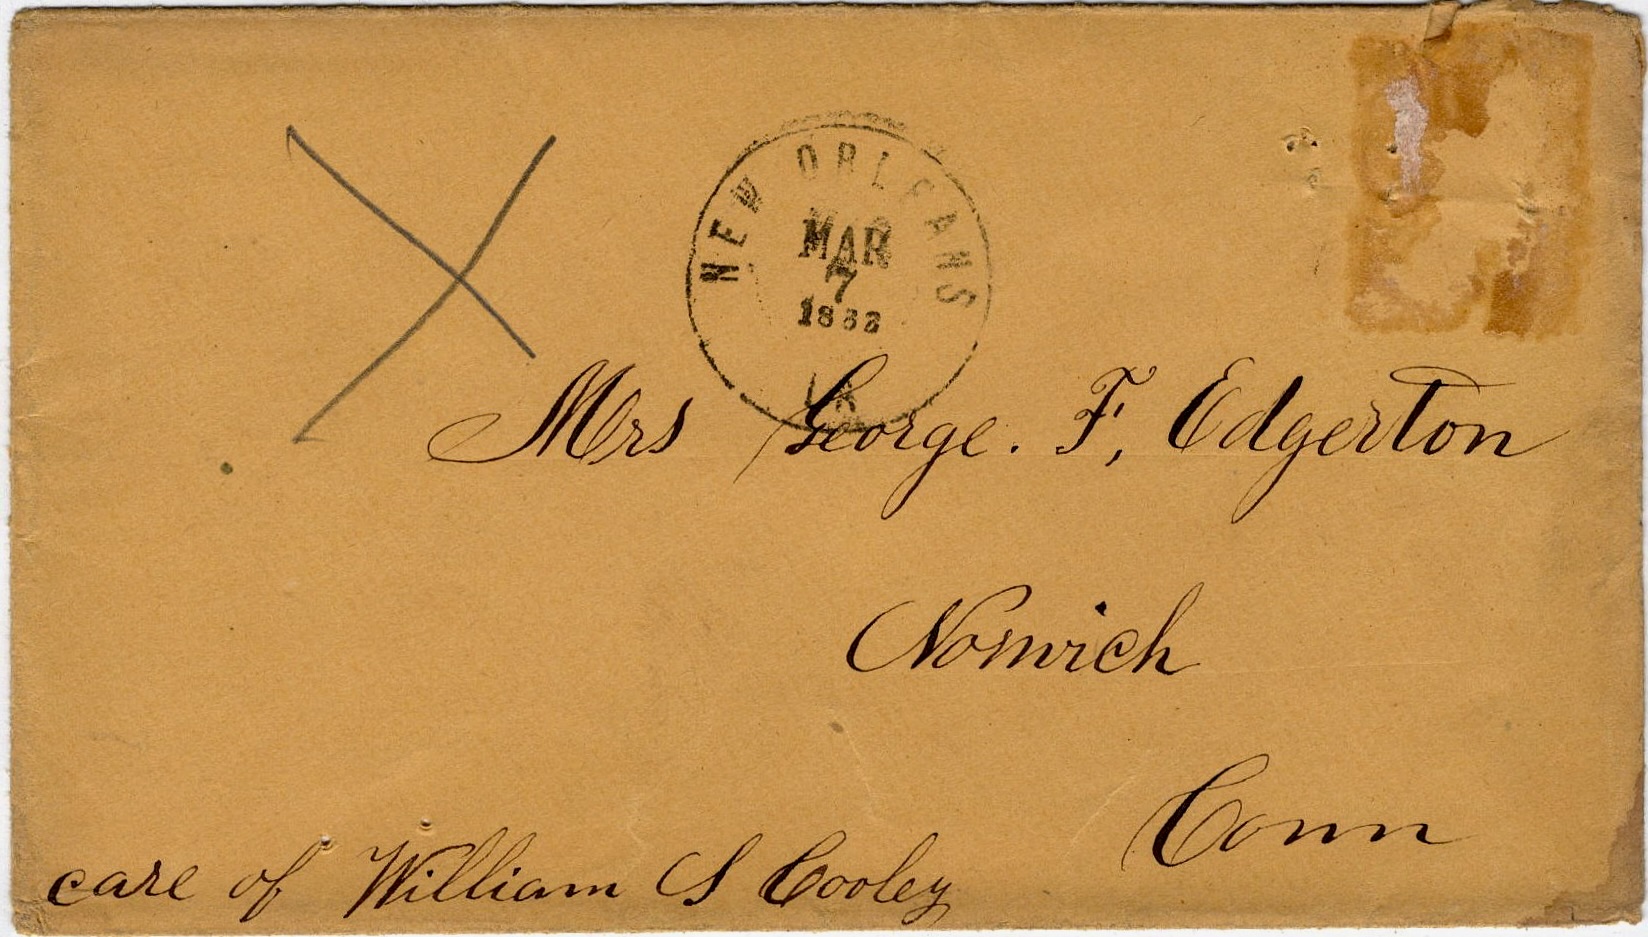 NEW ORLEANS
MAR
7
LA
Mrs George. F, Edgerton
Norwich
Conn
care of William S Cooley